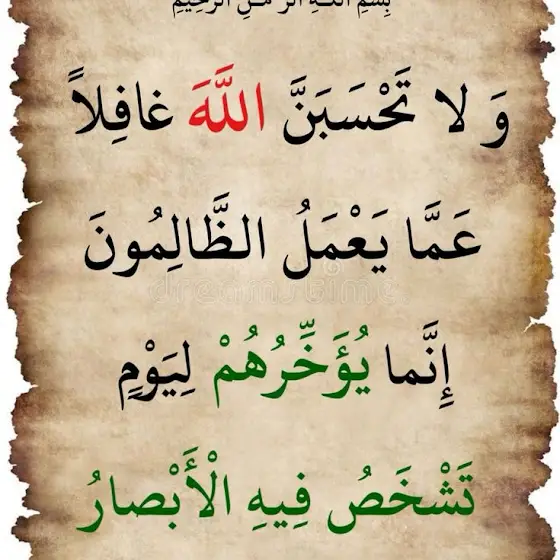 بِسْمِ اللّٰهِ الرَّحْمٰنِ الرَّحِیْمِ
وَ لا تَحْسَبَنَّ اللَّهَ غافِلاً
عَمَّا يَعْمَلُ الظَّالِمُونَ
dreamstime
إِنَّما يُؤَخِّرُهُمْ لِيَوْمٍ
تَشْخَصُ فِيهِ الْأَبْصارُ